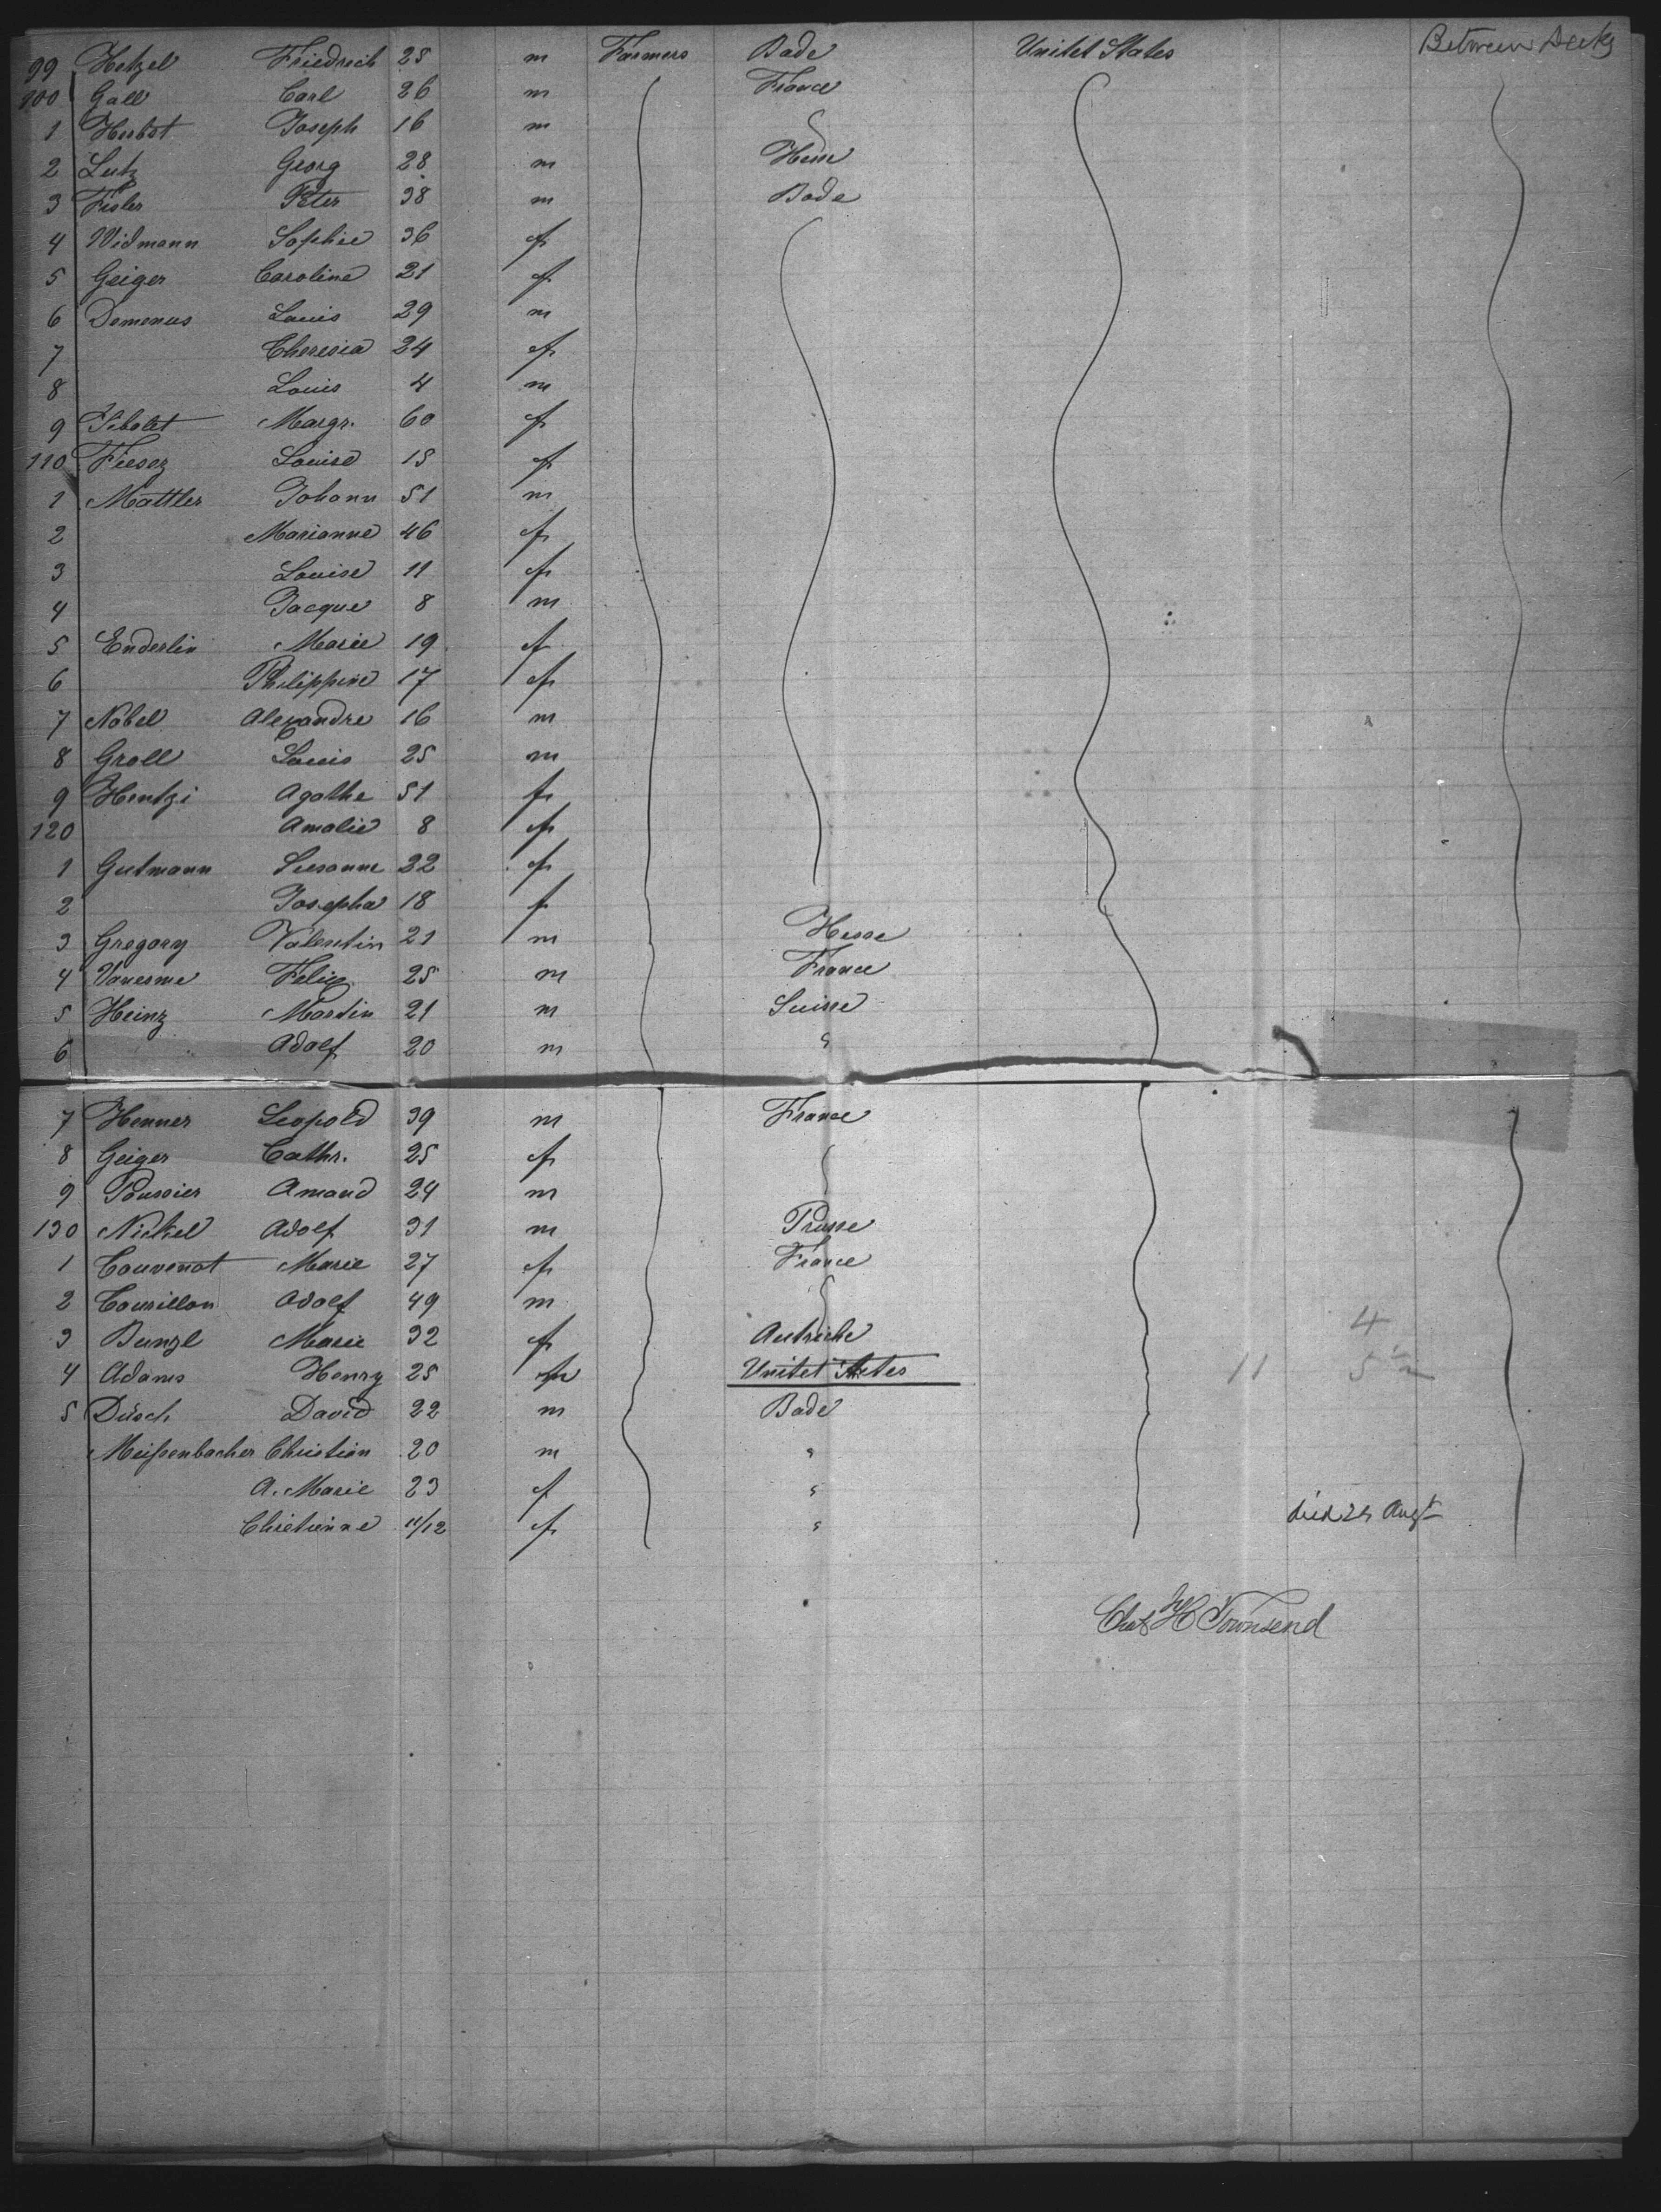 99 Hetzel Friedrich 25 m Farmers Bade Unitet States Between Decks
100 Gall Carl 26 m France
1 Herbst Joseph 16 m
2 Lutz Georg 28 m Hesse
3 Fisler Peter 38 m Bade
4 Widmann Sophie 36 f
5 Geiger Caroline 21 f
6 Domenus Louis 29 m
7 Theresia 24 f
8 Louis 4 m
9 Tibolet Margr. 60 f
110 Fieser Louise 15 f
1 Mattler Johann 51 m
2 Marianne 46 f
3 Louise 11 f
4 Jacque 8 m
5 Enderlin Marie 19 f
6 Philippine 17 f
7 Nobel Alexandre 16 m
8 Groll Louis 25 m
9 Hentzi Agathe 51 f
120 Amalie 8 f
1 Gutmann Susanne 22 f
2 Josepha 18 f
3 Gregory Valentin 21 m Hesse
4 Vanesme Felix 25 m France
5 Heinz Martin 21 m Suisse
6 Adolf 20 m "
7 Henner Leopold 39 m France
8 Geiger Cathr. 25 f
9 Poussier Amand 24 m
130 Nickel Adolf 31 m Prusse
1 Couvenat Marie 27 f France
2 Courillon Adolf 49 m
3 Bunzl Marie 32 f Autriche 4
4 Adams Henry 25 m Unitet States 11 5
5 Düsch David 22 m Bade
Meißenbacher Christian 20 m "
A. Marie 23 f "
Chretienne 11/12 f " died 24 Augt
Chas H Townsend